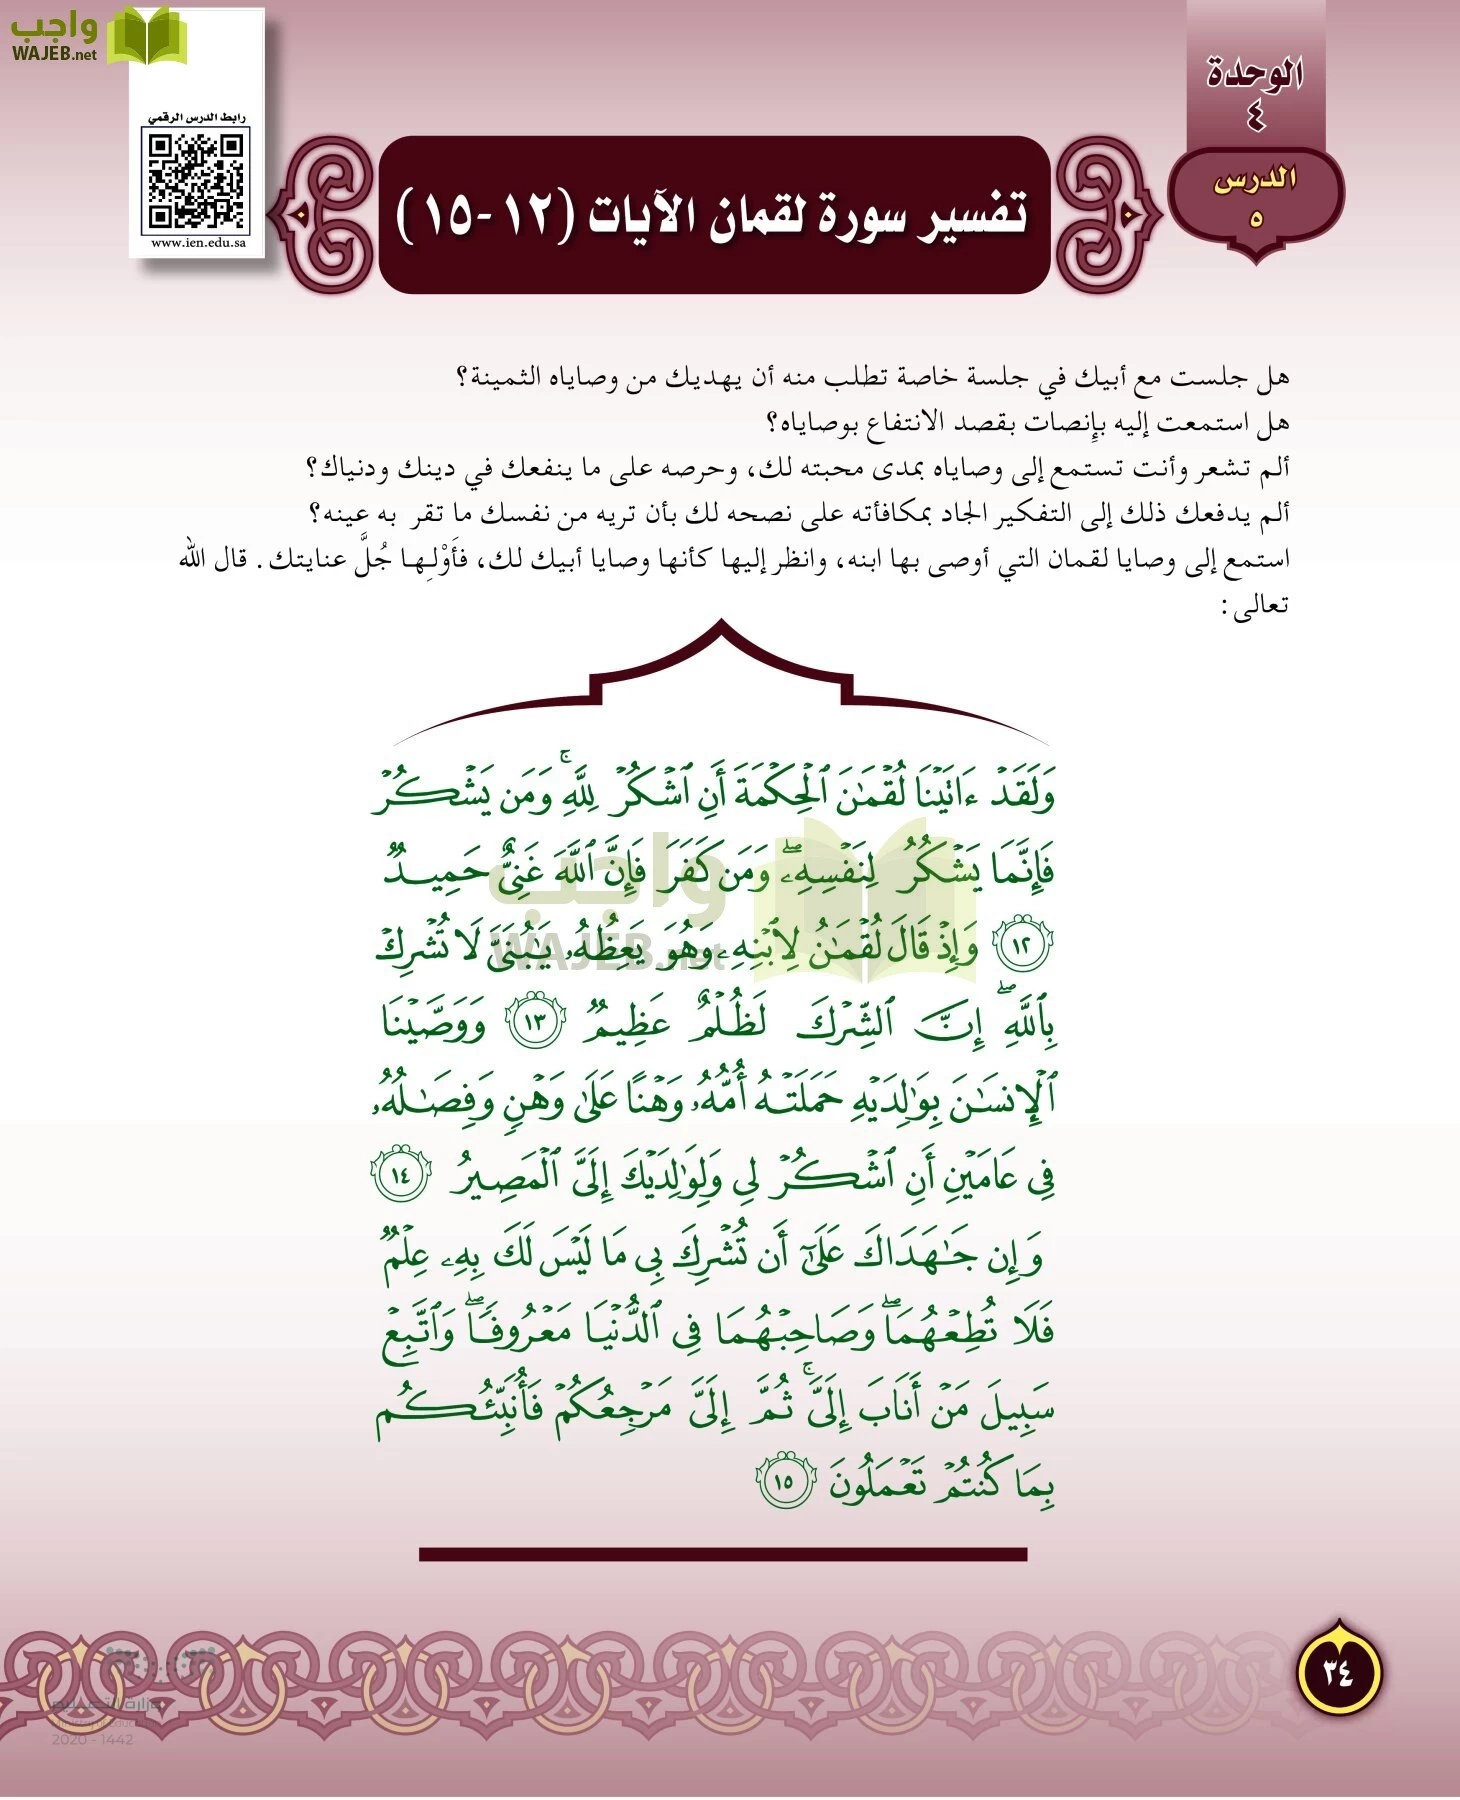 واجب
WAJEB.net
رابط الدرس الرقمي
www.ien.edu.sa
الوحدة
٤
الدرس
٥
تفسير سورة لقمان الآيات (١٢-١٥)
هل جلست مع أبيك في جلسة خاصة تطلب منه أن يهديك من وصاياه الثمينة؟
هل استمعت إليه بإِنصات بقصد الانتفاع بوصاياه؟
ألم تشعر وأنت تستمع إلى وصاياه بمدى محبته لك، وحرصه على ما ينفعك في دينك ودنياك؟
ألم يدفعك ذلك إلى التفكير الجاد بمكافأته على نصحه لك بأن تريه من نفسك ما تقر به عينه؟
استمع إلى وصايا لقمان التي أوصى بها ابنه، وانظر إليها كأنها وصايا أبيك لك، فأَوْلِـها جُلَّ عنايتك. قال الله
تعالى:
وَلَقَدْ ءَاتَيْنَا لُقْمَٰنَ ٱلْحِكْمَةَ أَنِ ٱشْكُرْ لِلَّهِ ۚ وَمَن يَشْكُرْ
فَإِنَّمَا يَشْكُرُ لِنَفْسِهِۦ ۖ وَمَن كَفَرَ فَإِنَّ ٱللَّهَ غَنِىٌّ حَمِيدٌ
١٢ وَإِذْ قَالَ لُقْمَٰنُ لِٱبْنِهِۦ وَهُوَ يَعِظُهُۥ يَٰبُنَىَّ لَا تُشْرِكْ
بِٱللَّهِ ۖ إِنَّ ٱلشِّرْكَ لَظُلْمٌ عَظِيمٌ ١٣ وَوَصَّيْنَا
ٱلْإِنسَٰنَ بِوَٰلِدَيْهِ حَمَلَتْهُ أُمُّهُۥ وَهْنًا عَلَىٰ وَهْنٍ وَفِصَٰلُهُۥ
فِى عَامَيْنِ أَنِ ٱشْكُرْ لِى وَلِوَٰلِدَيْكَ إِلَىَّ ٱلْمَصِيرُ ١٤
وَإِن جَٰهَدَاكَ عَلَىٰٓ أَن تُشْرِكَ بِى مَا لَيْسَ لَكَ بِهِۦ عِلْمٌ
فَلَا تُطِعْهُمَا ۖ وَصَاحِبْهُمَا فِى ٱلدُّنْيَا مَعْرُوفًا ۖ وَٱتَّبِعْ
سَبِيلَ مَنْ أَنَابَ إِلَىَّ ۚ ثُمَّ إِلَىَّ مَرْجِعُكُمْ فَأُنَبِّئُكُم
بِمَا كُنتُمْ تَعْمَلُونَ ١٥
واجب
WAJEB.net
٣٤
وزارة التعليم
Ministry of Education
2020 - 1442